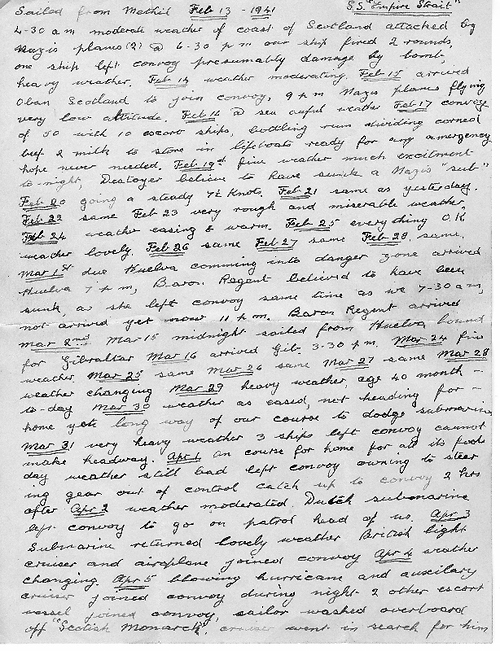 Sailed from Methil Feb 13 - 1941 S.S. "Empire Strait"
4-30 am moderate weather of coast of Scotland attacked by
Nazis planes (2) @ 6-30 pm our ship fired 2 rounds,
one ship left convoy presumably damage by bomb.
heavy weather. Feb 14 weather moderating. Feb 15 arrived
Oban Scotland to join convoy, 9 pm Nazis planes flying
very low altitude. Feb 16 @ sea awful weather Feb 17 convoy
of 50 with 10 escort ships, bottling rum dividing corned
beef & milk to store in lifeboats ready for any emergency
hope never needed. Feb 19th fine weather much excitement
to-night, Destoyer believe to have sunk a Nazis "sub"
Feb 20 going a steady 7½ Knots. Feb 21 same as yesterday.
Feb 22 same Feb 23 very rough and miserable weather,
Feb 24 weather easing & warm. Feb 25 everything O.K
weather lovely. Feb 26 same Feb 27 same Feb 28 same,
Mar 1st due Huelva comming into danger zone arrived
Huelva 7 pm, Baron Regent believed to have been
sunk, as she left convoy same time as we 7-30 am,
not arrived yet now 11 pm. Baron Regent arrived
Mar 2nd Mar 15 midnight sailed from Huelva bound
for Gibraltar Mar 16 arrived Gib. 3-30 p.m. Mar 24 fine
weather Mar 25 same Mar 26 same Mar 27 same Mar 28
weather changing Mar 29 heavy weather, age 40 month
to-day Mar 30 weather as eased, not heading for -
home yet long way of our course to dodge submarine
Mar 31 very heavy weather 3 ships left convoy cannot
make headway. Apr 1 on course for home for all its fools
day weather still bad left convoy owning to steer
ing gear out of control catch up to convoy 2 hrs
after Apr 2 weather moderated. Dutch submarine
left convoy to go on patrol head of us. Apr 3
Submarine returned lovely weather British light
cruiser and airoplane joined convoy Apr 4 weather
changing. Apr 5 blowing hurricane and auxilary
cruiser joined convoy during night. 2 other escort
vessel joined convoy, sailor washed overboard
off "Scotish Monarch", cruiser went in search for him